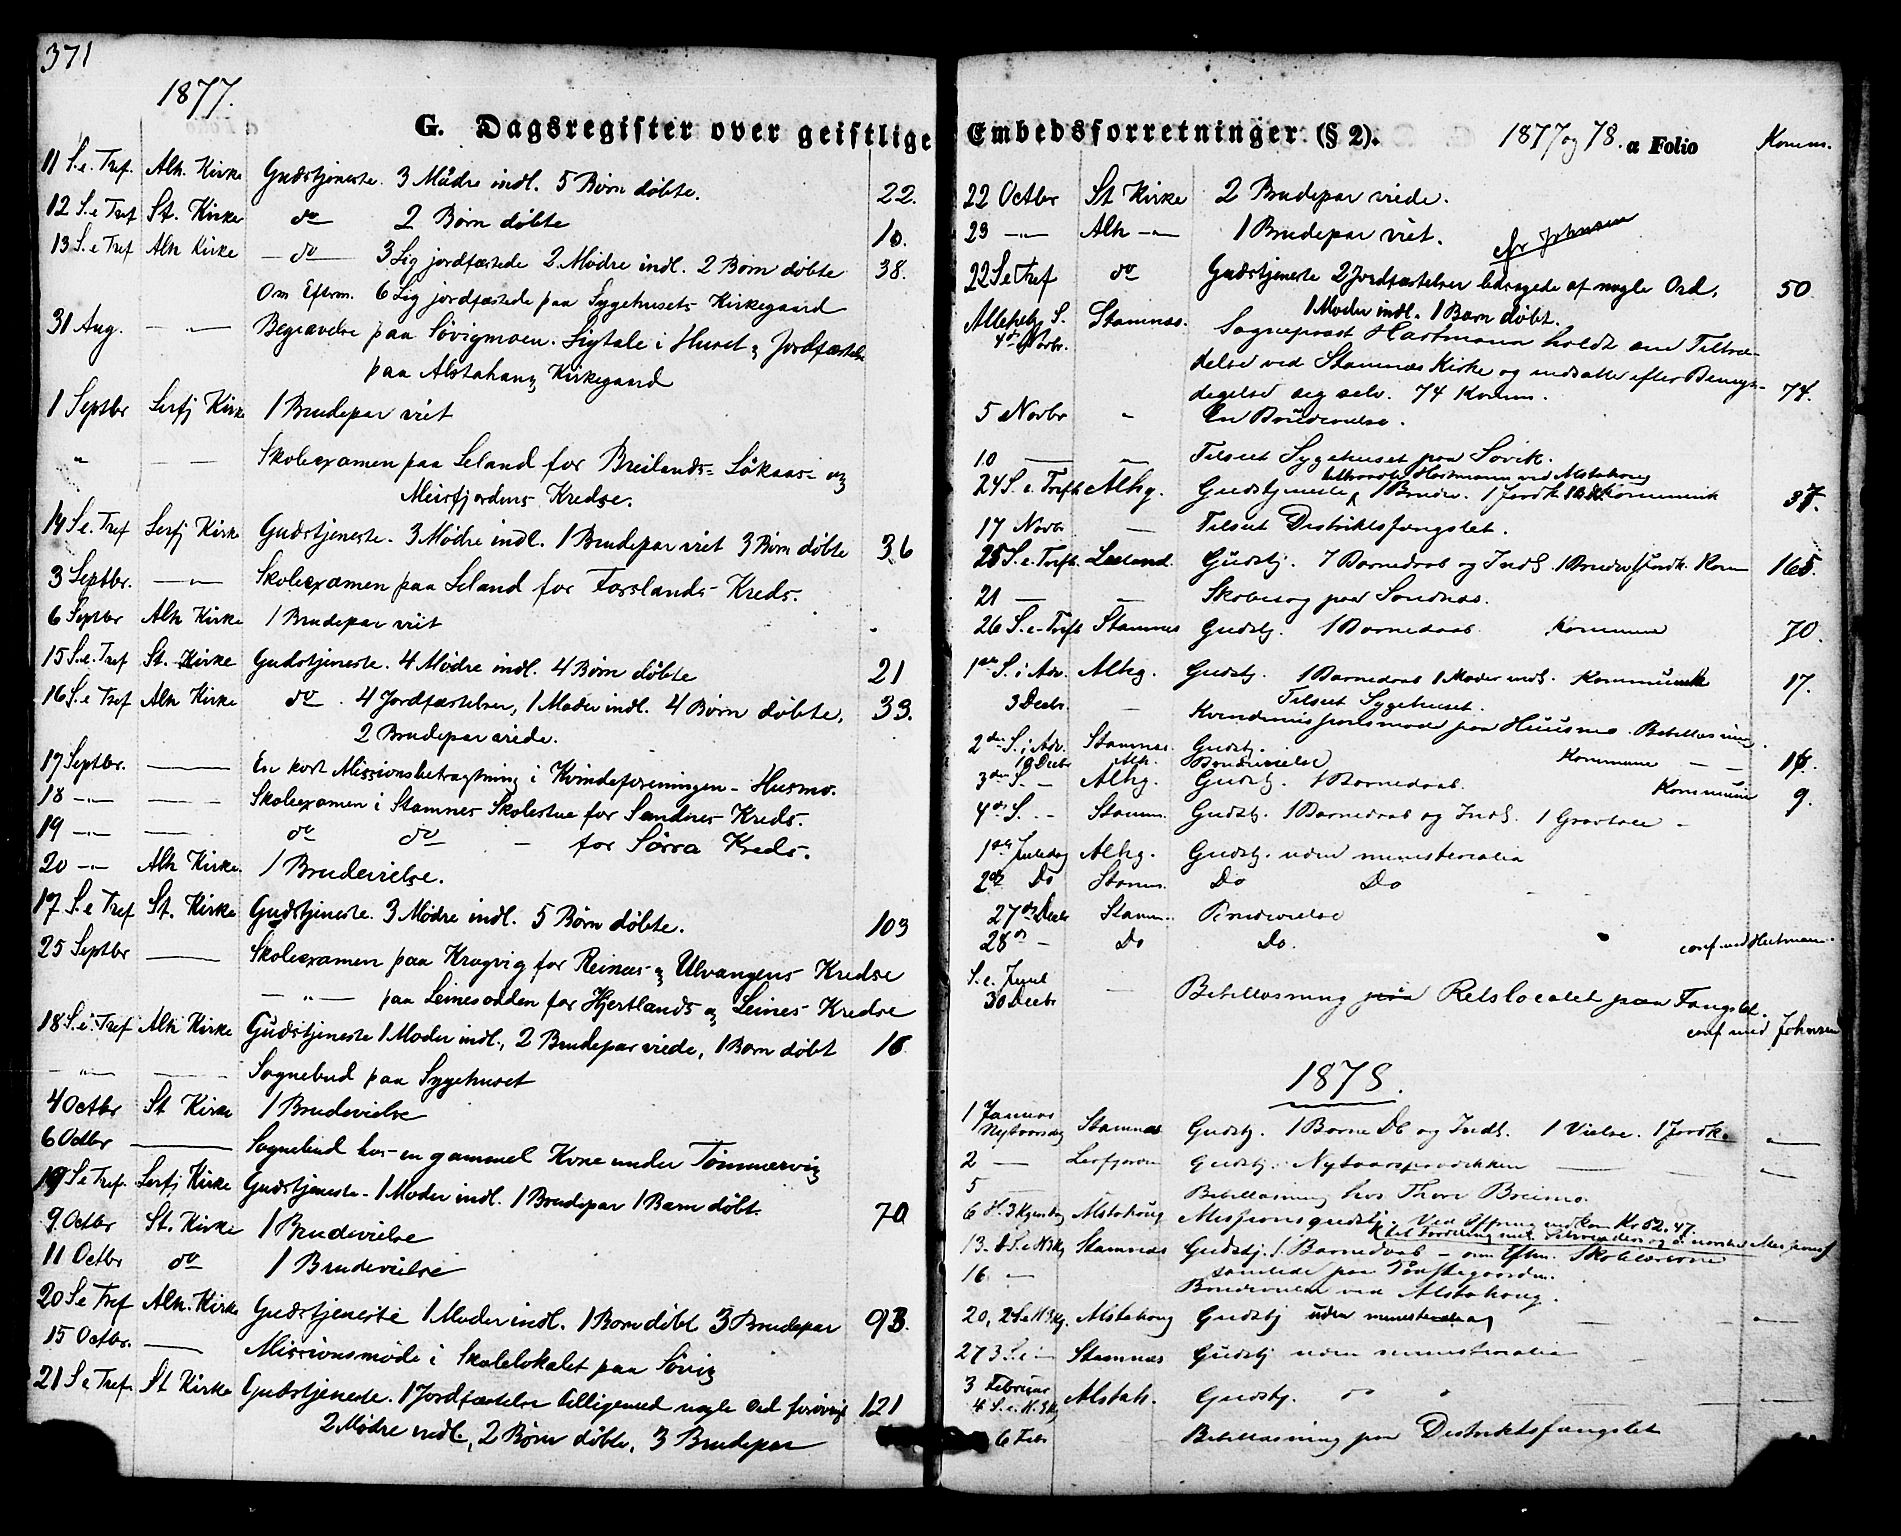 371
1877.
G. Dagsregister over geistlige
11 S. e. Tref. Alh. Kirke Gudstjeneste. 3 Mødre indl. 5 Børn døbte. 22.
12 S. e Tref St. Kirke do 2 Børn døbte 10.
13 S. e Tref Alh Kirke do 3 Lig jordfæstede 2 Mødre indl. 2 Børn døbte 38.
Om Efterm. 6 Lig jordfæstede paa Sygehusets Kirkegaard
31 Aug. — " — Begravelse paa Søvigmoen. Ligtale i Huset og Jordfæstelse
paa Alstahaug Kirkegaard
1 Septbr Lerfj Kirke 1 Brudepar viet
" — — Skoleexamen paa Leland for Breilands- Løkaas- og
Meisfjordens Kredse.
14 S. e. Tref Lerfj Kirke Gudstjeneste. 3 Mødre indl. 1 Brudepar viet 3 Børn døbte 36
3 Septbr. — " — Skoleexamen paa Leland for Forslands- Kreds.
6 Septbr Alh Kirke 1 Brudepar viet
15 S. e. Tref St. Kirke Gudstjeneste. 4 Mødre indl. 4 Børn døbte 21
16 S. e Tref Alh Kirke do. 4 Jordfæstelser, 1 Moder indl. 4 Børn døbte, 33.
2 Brudepar viede.
17 Septbr. — En kort Missionsbetragtning i Kvindeforeningen - Husmo.
18 — " — — Skoleexamen i Stamnes Skolestue for Sandnes Kreds.
19 — " — — do do - for Sørra Kreds.
20 — " — Alh Kirke. 1 Brudevielse.
17 S. e Tref St. Kirke Gudstjeneste. 3 Mødre indl. 5 Børn døbte. 103
25 Septbr — Skoleexamen paa Kragvig for Reinæs- og Ulvangens Kredse
— " — paa Leinesodden for Hjertlands og Leines Kredse
18 S. e. Tref Alh Kirke Gudstjeneste 1 Moder indl., 2 Brudepar viede, 1 Barn døbt 16
— " — — Sognebud paa Sygehuset
4 Octbr St Kirke 1 Brudevielse
6 Octbr — Sognebud hos en gammel Kone under Tømmervig
19 S e Tref. Lerfj Kirke Gudstjeneste - 1 Moder indl. 1 Brudepar 1 Barn døbt. 70
9. Octbr St. Kirke 1 Brudevielse
11 Octbr do 1 Brudevielse
20 S. e Tref Alh. Kirke Gudstjeneste 1 Moder indl. 1 Barn døbt 3 Brudepar 93.
15 Octbr. — Missionsmøde i Skolelokalet paa Søvig
21 S. e Tref. St Kirke Gudstjeneste. 1 Jordfæstelse tilligemed nogle Ord forøvrigt 121
2 Mødre indl., 2 Børn døbte, 3 Brudepar
Embedsforretninger (§ 2). 1877 og 78. a Folio Komm.
22 Octbr St Kirke 2 Brudepar viede.
23 — " — Alh — " — 1 Brudepar viet.
22 S e Tref do Gudstjeneste 2 Jordfæstelser ledsagede af nogle Ord, 50
1 Moder indl. 1 Barn døbt.
Allehelg. S. Stamnæs. Sognepræst Hartmann holdt sin Tiltræ-
4de Novbr.
delse ved Stamnæs Kirke og indsatte efter Bemyn-
degelse sig selv. 74 Komm. 74.
5 Novbr " En Brudevielse.
10 — — Tilseet Sygehuset paa Søvik.
tiltraadte Hartmann ved Alstahoug
24 S. e. Trefh Alhg. Gudstjeneste 1 Brudev. 1 Jordf. 37.
17 Novbr — Tilseet Distriktsfængslet.
25 S. e. Trefh. Leland. Gudstj. 7 Barnedaab og Indl. 1 Brudev. 1 Jordk. Kom 165.
21 — — Skolebesøg paa Sandnæs.
26 S. e. Trefh Stamnes Gudstj. 1 Barnedaab. Kommun 70.
1ste S. i Adv. Alhg. Gudstj. 1 Barnedaab 1 Moder indl. Kommunik 17.
3 Decbr. — Tilseet Sygehuset.
Kvindemissionsmøde paa Huusmo. Bibellæsning.
2den S. i Adv. Stamnæs. Gudstj. Kommun — — 16.
10 Decbr Alh. Brudevielse
3die S. — Alhg. Gudstj. 1 Barnedaab. Kommun 9.
4de S. - - Stamn. Gudstj. 1 Barnedaab og Indl. 1 Gravtale -
1ste Juledag Alhg. Gudstj. uden ministerialia
2den Do Stamn. Do Do
27de Decbr Stamn. Brudevielse
28de - Do Do.
conf. med Hartmann.
S. e. Juul
30 Decbr — Bibellæsning paa Retslocalet paa Fængslet.
conf med Johnsen
1878.
1 Januar
Nytaarsdag Stamnæs Gudstj. 1 Barne Db og Indl. 1 Vielse. 1 Jordk. —
2 — Lerfjorden Gudstj. Nytaarsprædikken — — —
5 — Bibellæsning hos Thor Breimo.
6 H. 3 Kgersdag Alstahoug Missionsgudstj. Ved Offring indkom Kr 52.47
13. 1 S. e. H3Kg Stamnæs Gudstj. 1 Barnedaab - om Eftm. Skolelærerne
16 — samlede paa Tønstegaarden.
Brudevielse ved Alstahoug.
20, 2 S. e. H3Kg. Alstahoug Gudstj uden ministerialia —
27 3 S. e. — Stamnæs Gudstj uden ministerialia — —
3 Februar Alstah. Gudstj. do " —
4 S. e. H.3Kg
6 Febr Bibellæsning paa Distriktsfængslet